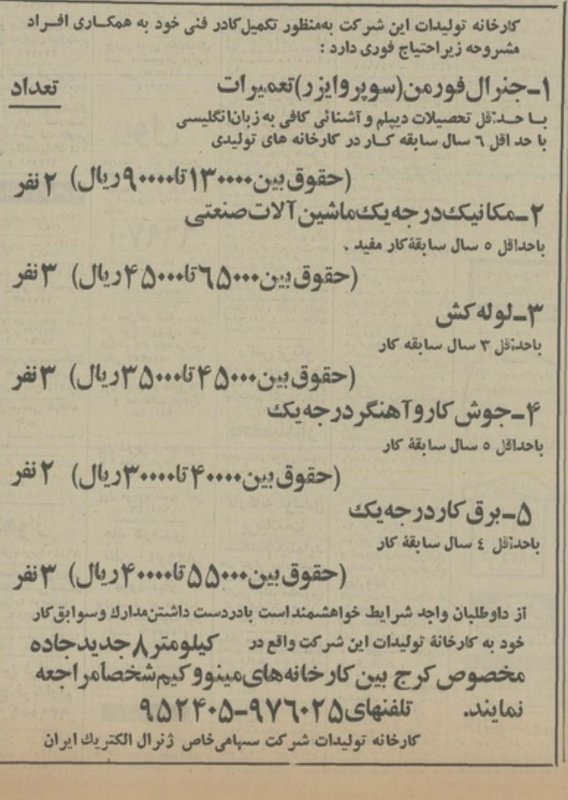 کارخانه تولیدات این شرکت به‌منظور تکمیل کادر فنی خود به همکاری افراد
مشروحه زیر احتیاج فوری دارد :
۱ـ جنرال فورمن (سوپروایزر) تعمیرات تعداد
با حداقل تحصیلات دیپلم و آشنائی کافی به زبان انگلیسی
با حداقل ۶ سال سابقه کار در کارخانه های تولیدی
(حقوق بین ۱۳۰۰۰۰ تا ۹۰۰۰۰ ریال) ۲ نفر
۲ـ مکانیک درجه یک ماشین آلات صنعتی
باحداقل ۵ سال سابقهٔ کار مفید .
(حقوق بین ۶۵۰۰۰ تا ۴۵۰۰۰ ریال) ۳ نفر
۳ـ لوله کش
باحداقل ۳ سال سابقه کار
(حقوق بین ۴۵۰۰۰ تا ۳۵۰۰۰ ریال) ۳ نفر
۴ـ جوش کار و آهنگر درجه یک
باحداقل ۵ سال سابقهٔ کار
(حقوق بین ۴۰۰۰۰ تا ۳۰۰۰۰ ریال) ۲ نفر
۵ـ برق کار درجه یک
باحداقل ۴ سال سابقهٔ کار
(حقوق بین ۵۵۰۰۰ تا ۴۰۰۰۰ ریال) ۳ نفر
از داوطلبان واجد شرایط خواهشمند است بادردست داشتن مدارك و سوابق کار
خود به کارخانهٔ تولیدات این شرکت واقع در کیلومتر ۸ جدید جاده
مخصوص کرج بین کارخانه‌های مینو و کیم شخصاً مراجعه
نمایند. تلفنهای ۹۷۶۰۲۵-۹۵۲۴۰۵
کارخانه تولیدات شرکت سهامی خاص ژنرال الکتریك ایران